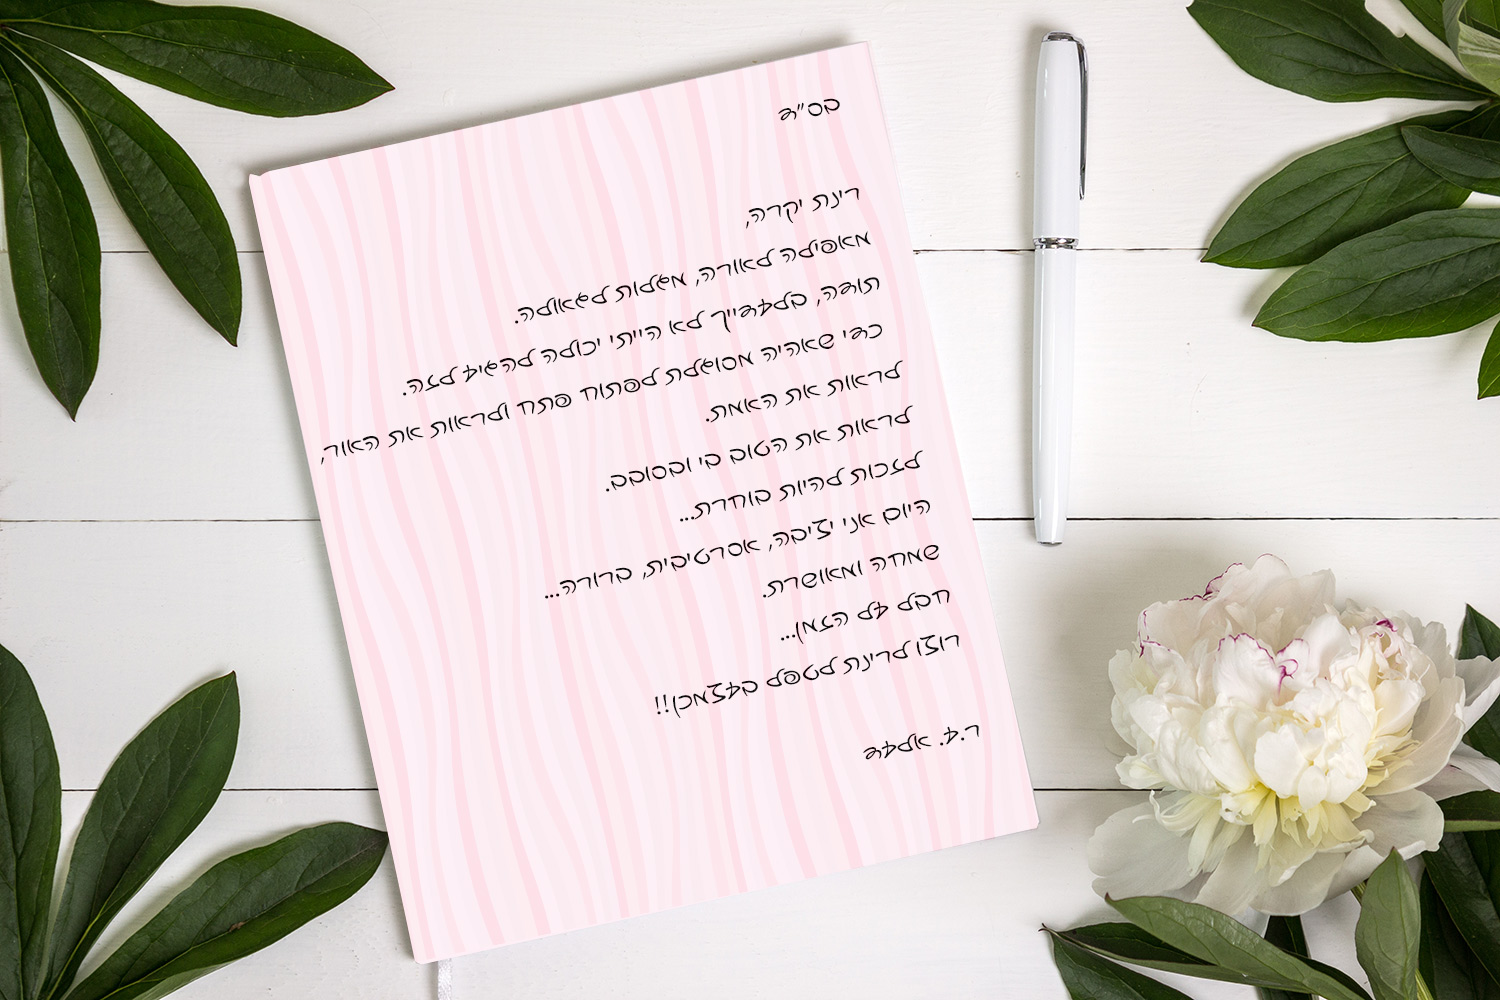 בס"ד
רינת יקרה,
מאפילה לאורה, מגלות לגאולה.
תודה, בלעדייך לא הייתי יכולה להגיע לזה.
כדי שאהיה מסוגלת לפתוח פתח ולראות את האור,
לראות את האמת.
לראות את הטוב בי ובסובב.
לזכות להיות בוחרת...
היום אני יציבה, אסרטיבית, ברורה...
שמחה ומאושרת.
חבל על הזמן...
רוצו לרינת לטפל בעצמכן!!
ר.ע. אלעד